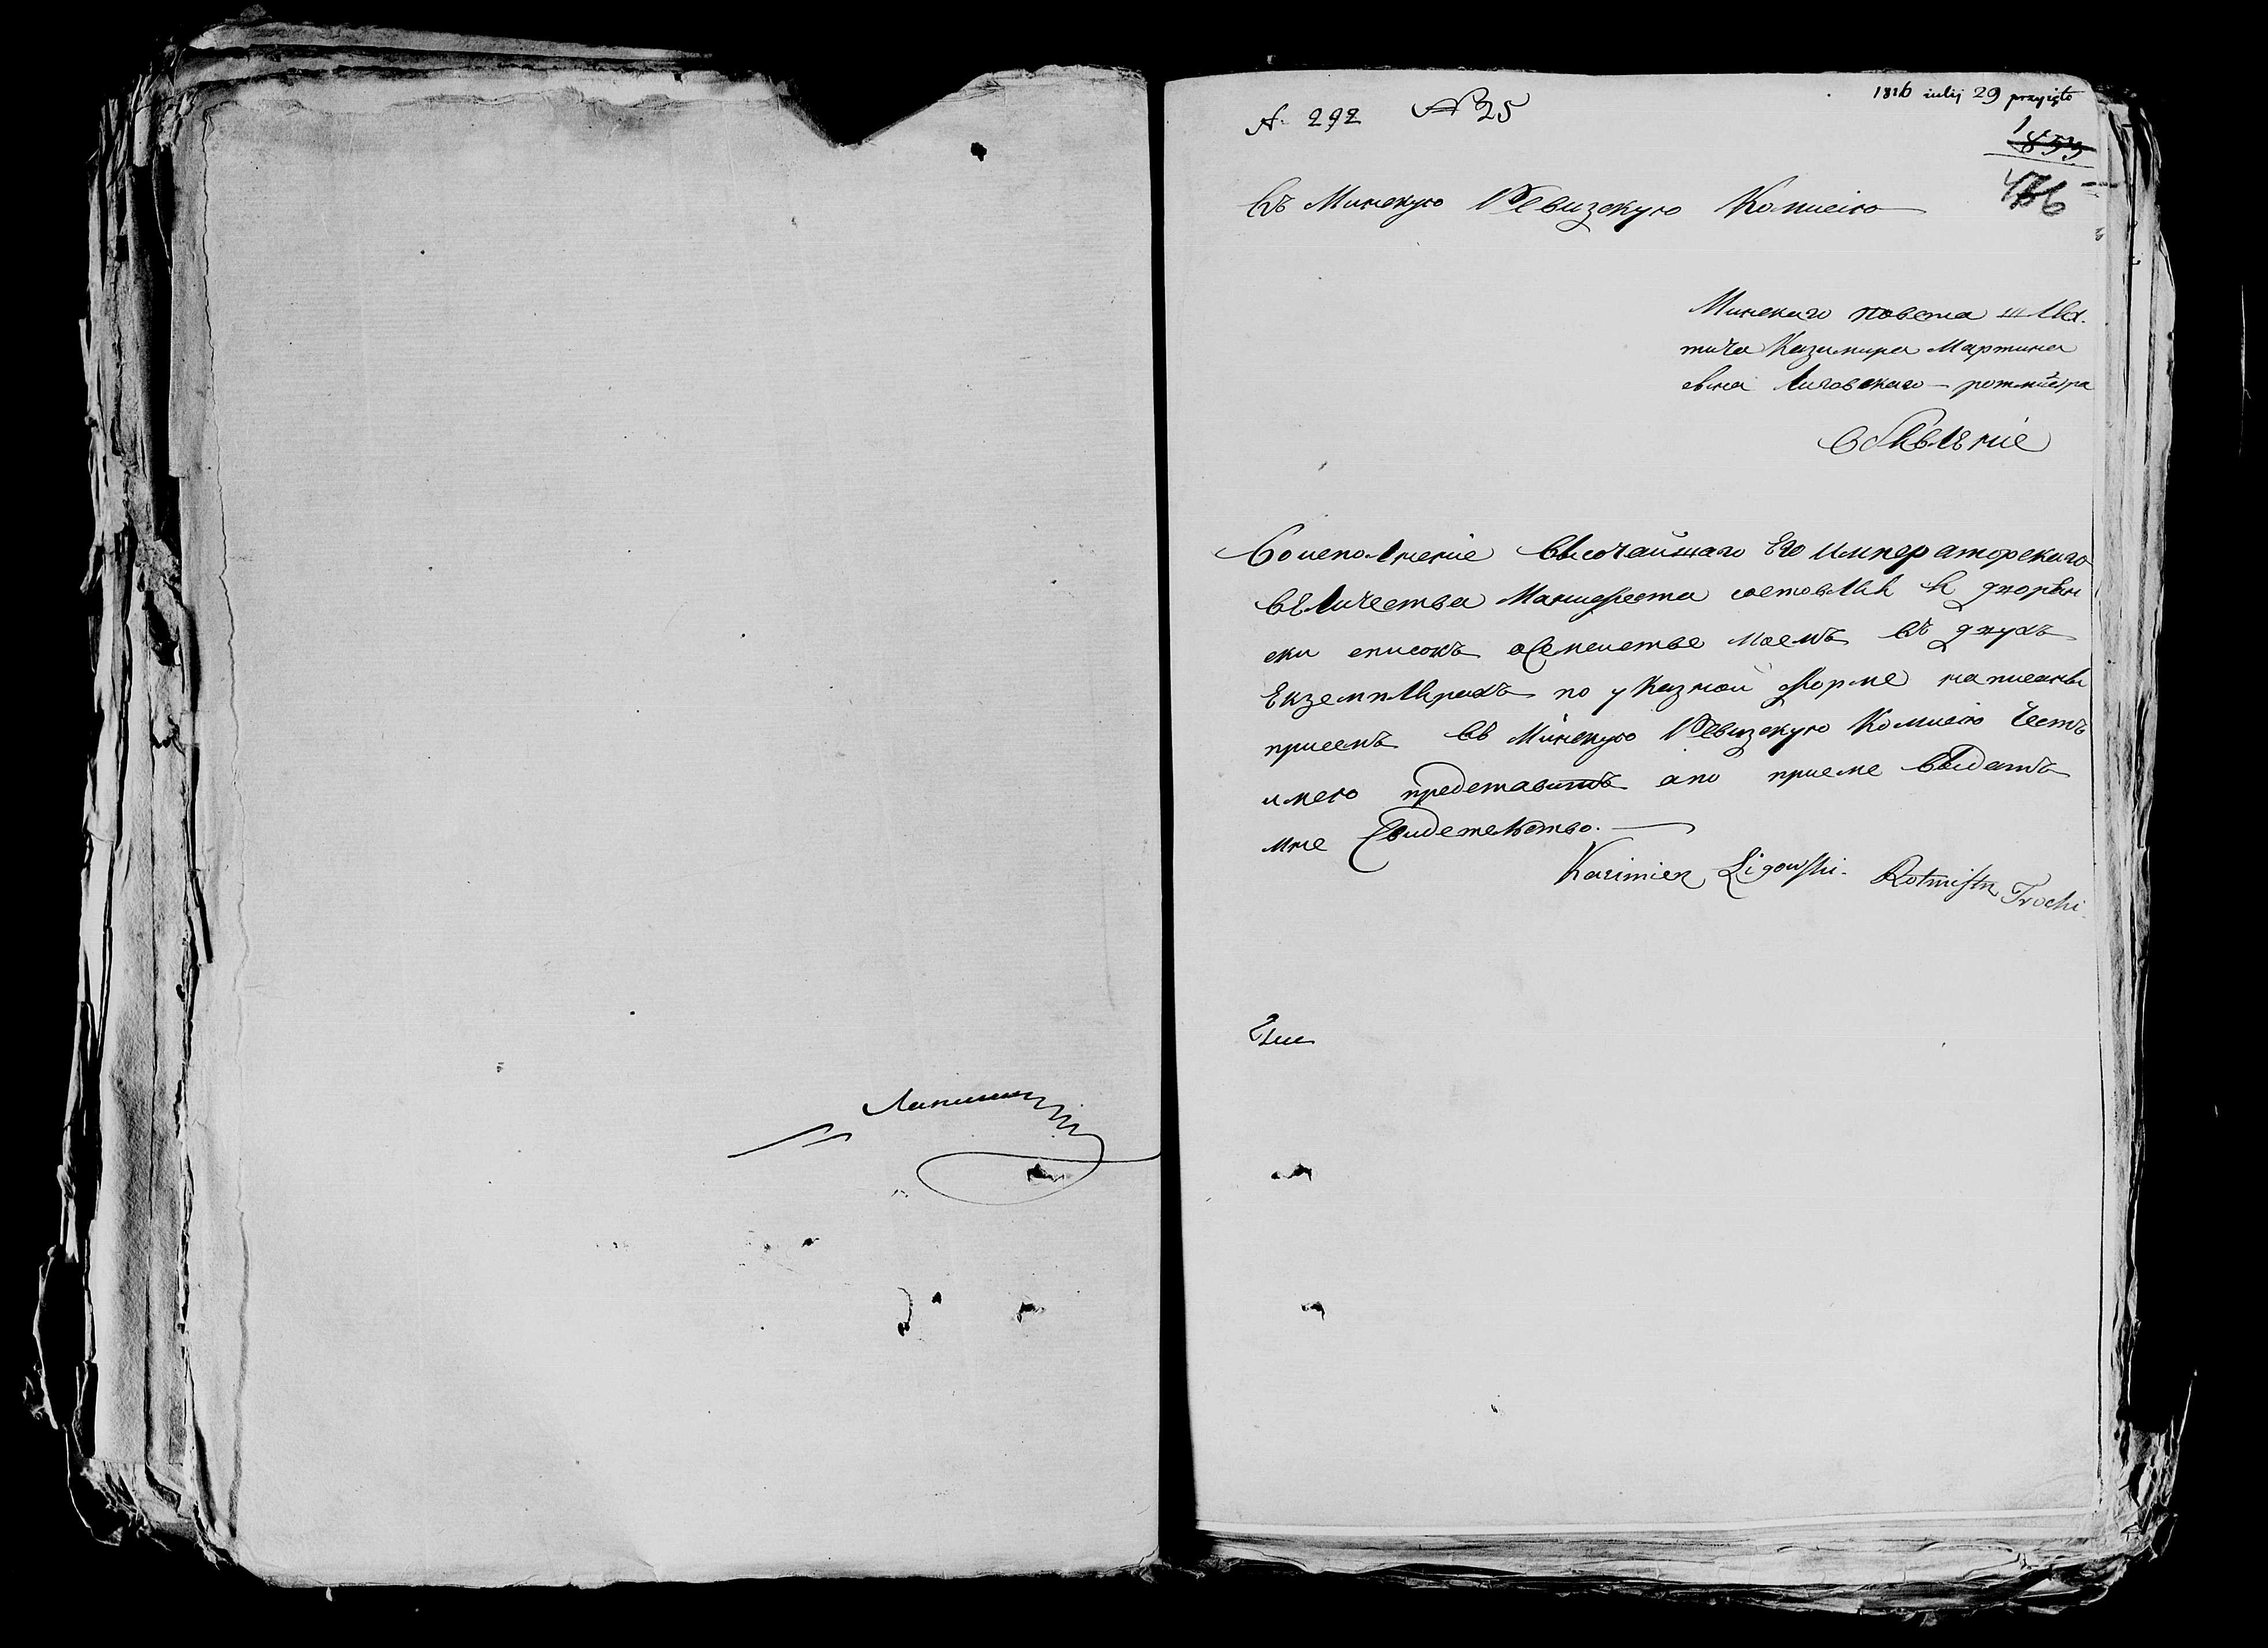 1816 iulij 29 przyięto
A. 292 № 25
1853
466
Въ Минскую Ревизскую Комисію
Минскаго повета шлях.
тича Казимира Мартина
сына Лиговскаго — ротмистра
Обявленіе
Во исполненіе Высочайшаго Его Императорскаго
Величества Манифеста составля я дворян
ски список о Семействе моемъ въ двухъ
Екземплярахъ по указной Форме написаны
присемъ въ Минскую Ревизскую Комисію Честь
имею представить а по приеме выдать
мне Свидетельство. —
Kazimierz Ligowski. Rotmistrz Trocki.